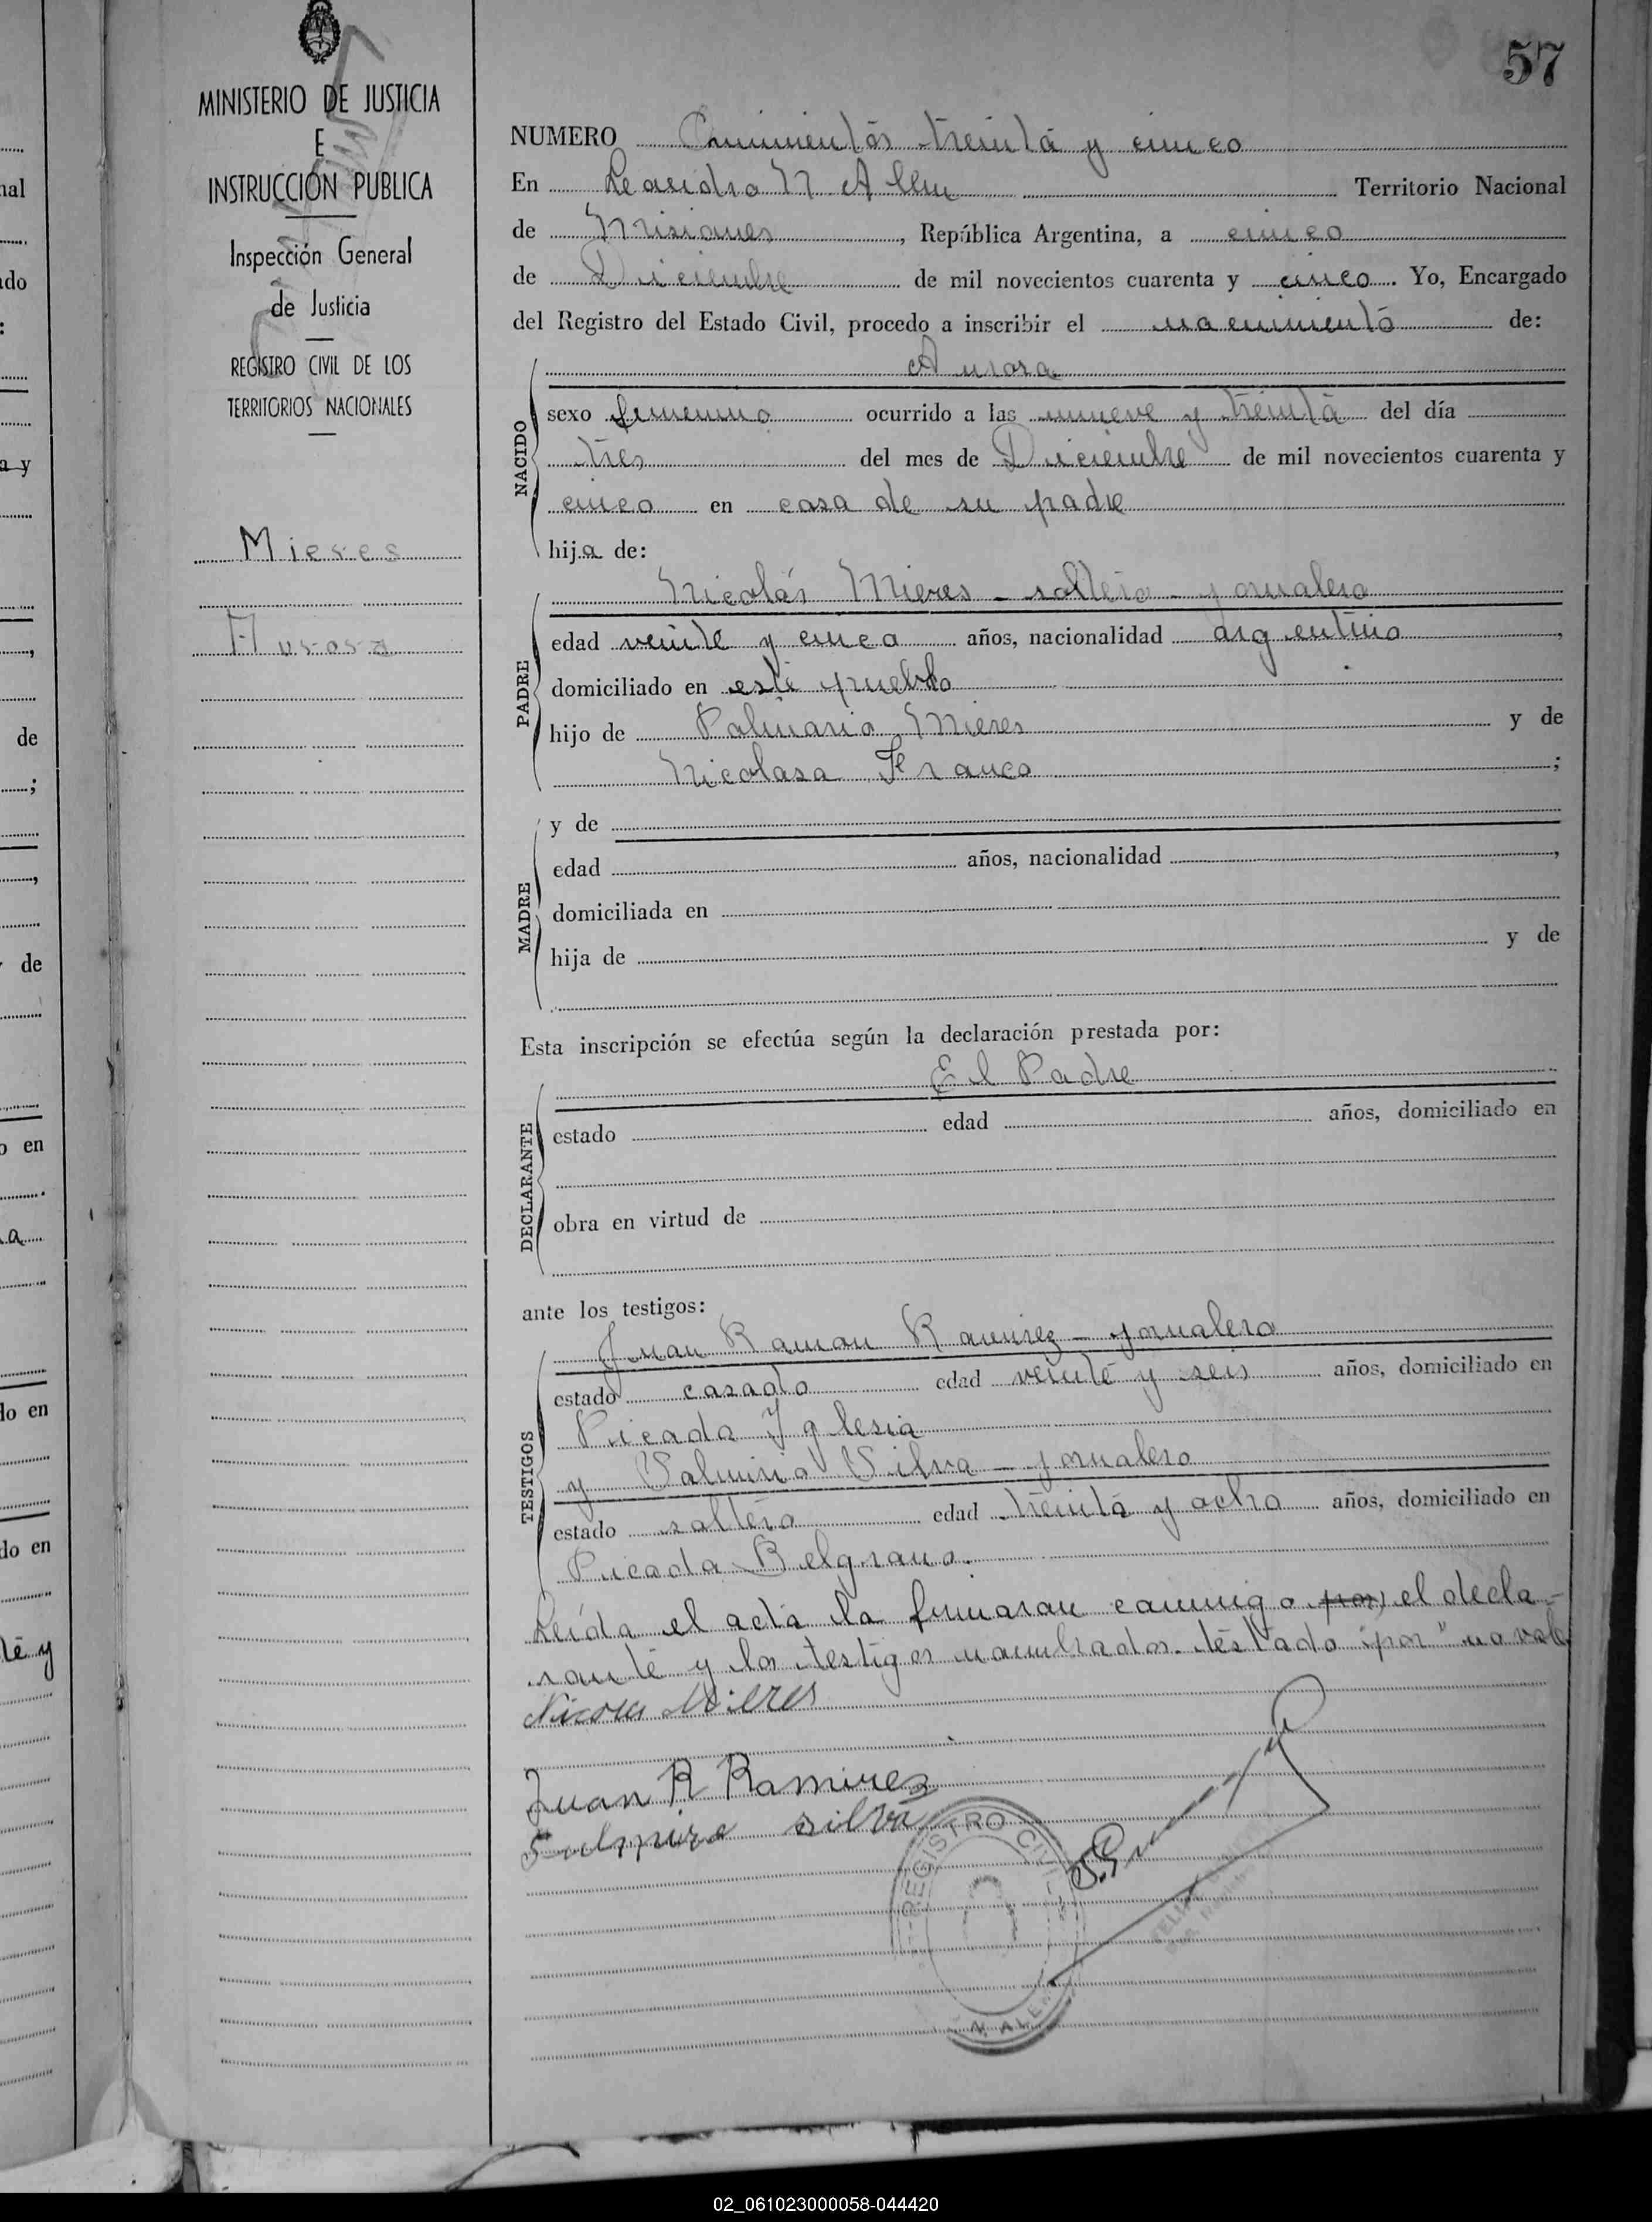 57
MINISTERIO DE JUSTICIA
E
INSTRUCCIÓN PUBLICA
Inspección General
de Justicia
REGISTRO CIVIL DE LOS
TERRITORIOS NACIONALES
Mieres
Aurora
NUMERO Quinientos treinta y cinco
En Leandro N Alem Territorio Nacional
de Misiones, República Argentina, a cinco
de Diciembre de mil novecientos cuarenta y cinco. Yo, Encargado
del Registro del Estado Civil, procedo a inscribir el nacimiento de:
Aurora
NACIDO
sexo femenino ocurrido a las nueve y treinta del día
tres del mes de Diciembre de mil novecientos cuarenta y
cinco en casa de su padre
hija de:
Nicolás Mieres - soltero - jornalero
PADRE
edad veinte y cinco años, nacionalidad argentino,
domiciliado en este pueblo
hijo de Palmario Mieres y de
Nicolasa Franco;
MADRE
y de
edad años, nacionalidad,
domiciliada en
hija de y de
Esta inscripción se efectúa según la declaración prestada por:
El Padre
DECLARANTE
estado edad años, domiciliado en
obra en virtud de
ante los testigos:
Juan Ramon Ramirez - jornalero
TESTIGOS
estado casado edad veinte y seis años, domiciliado en
Picada Iglesia
y Palmiro Silva - jornalero
estado soltero edad treinta y ocho años, domiciliado en
Picada Belgrano.
Leída el acta la firmaran conmigo por el decla-
rante y los testigos nombrados. testado "por" no vale
Nicolas Mieres
Juan R Ramirez
silva
REGISTRO CIVIL
N. ALEM
02_061023000058-044420